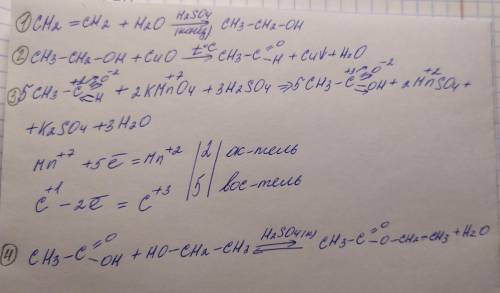 ① CH2 = CH2 + H2O H2SO4 (конц) → CH3-CH2-OH
② CH3-CH2-OH + CuO t°C → CH3-C=O-H + Cu↓ + H2O
③ 5CH3-C+1=O-2-H + 2KMn+7O4 + 3H2SO4 ⇒ 5CH3-C+3=O-2-OH + 2Mn+2SO4 +
+ K2SO4 + 3H2O
Mn+7 + 5e̅ = Mn+2 | 2 | ок-тель
C+1 - 2e̅ = C+3 | 5 | вос-тель
④ CH3-C=O-OH + HO-CH2-CH3 H2SO4(к) ⇄ CH3-C=O-O-CH2-CH3 + H2O